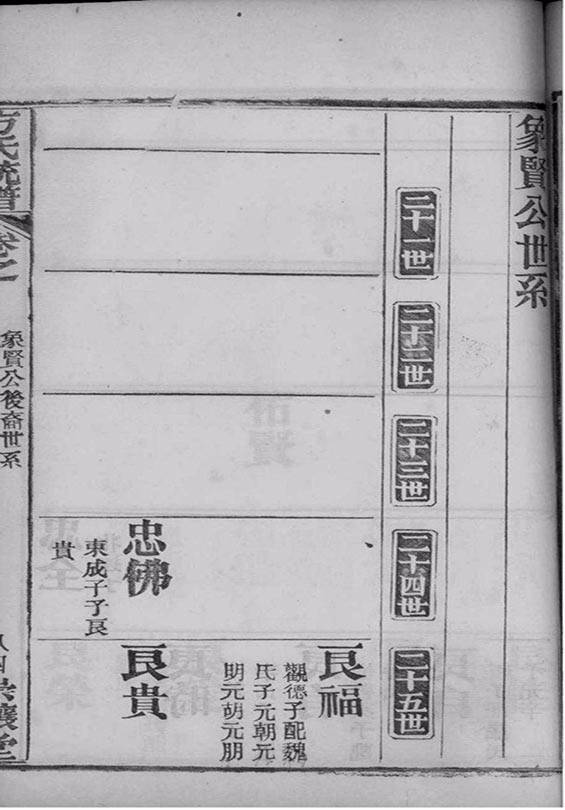 象賢公世系
二十一世
二十二世
二十三世
二十四世
二十五世
良福
觀德子配魏
氏子元朝元
明元胡元朋
忠彿
東成子子良
貴
良貴
方氏統譜
卷之
象賢公後裔世系